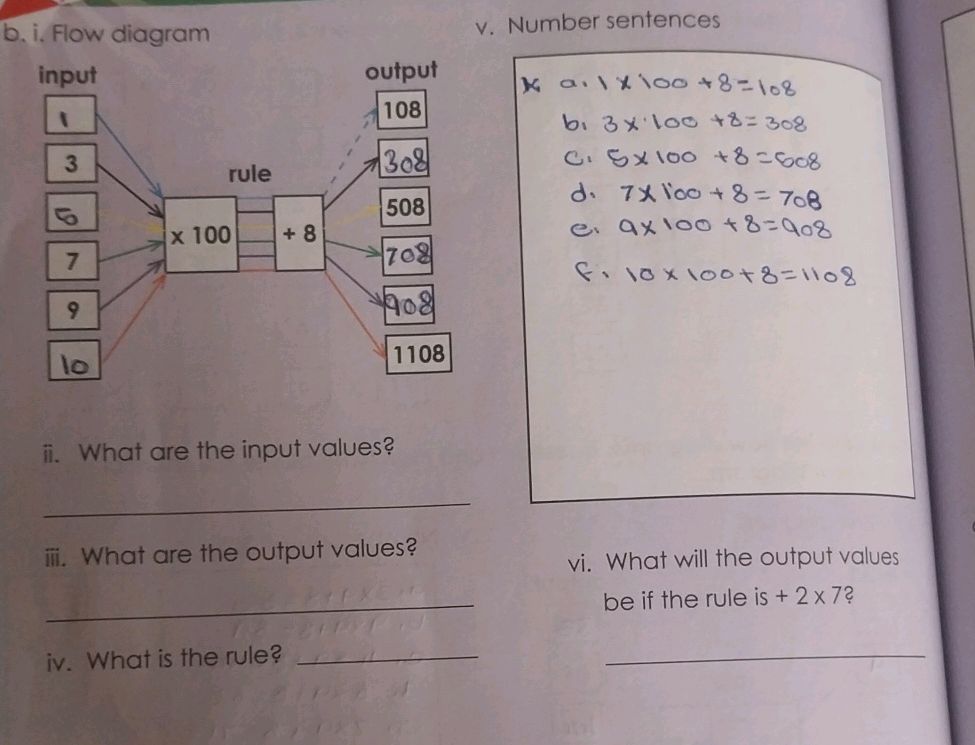 b. i. Flow diagram
input
output
1
3
5
7
9
10
rule
x 100
+ 8
108
308
508
708
908
1108
ii. What are the input values?
iii. What are the output values?
iv. What is the rule?
v. Number sentences
a. 1 x 100 + 8 = 108
b. 3 x 100 + 8 = 308
c. 5 x 100 + 8 = 508
d. 7 x 100 + 8 = 708
e. 9 x 100 + 8 = 908
f. 10 x 100 + 8 = 1108
vi. What will the output values
be if the rule is + 2 x 7?